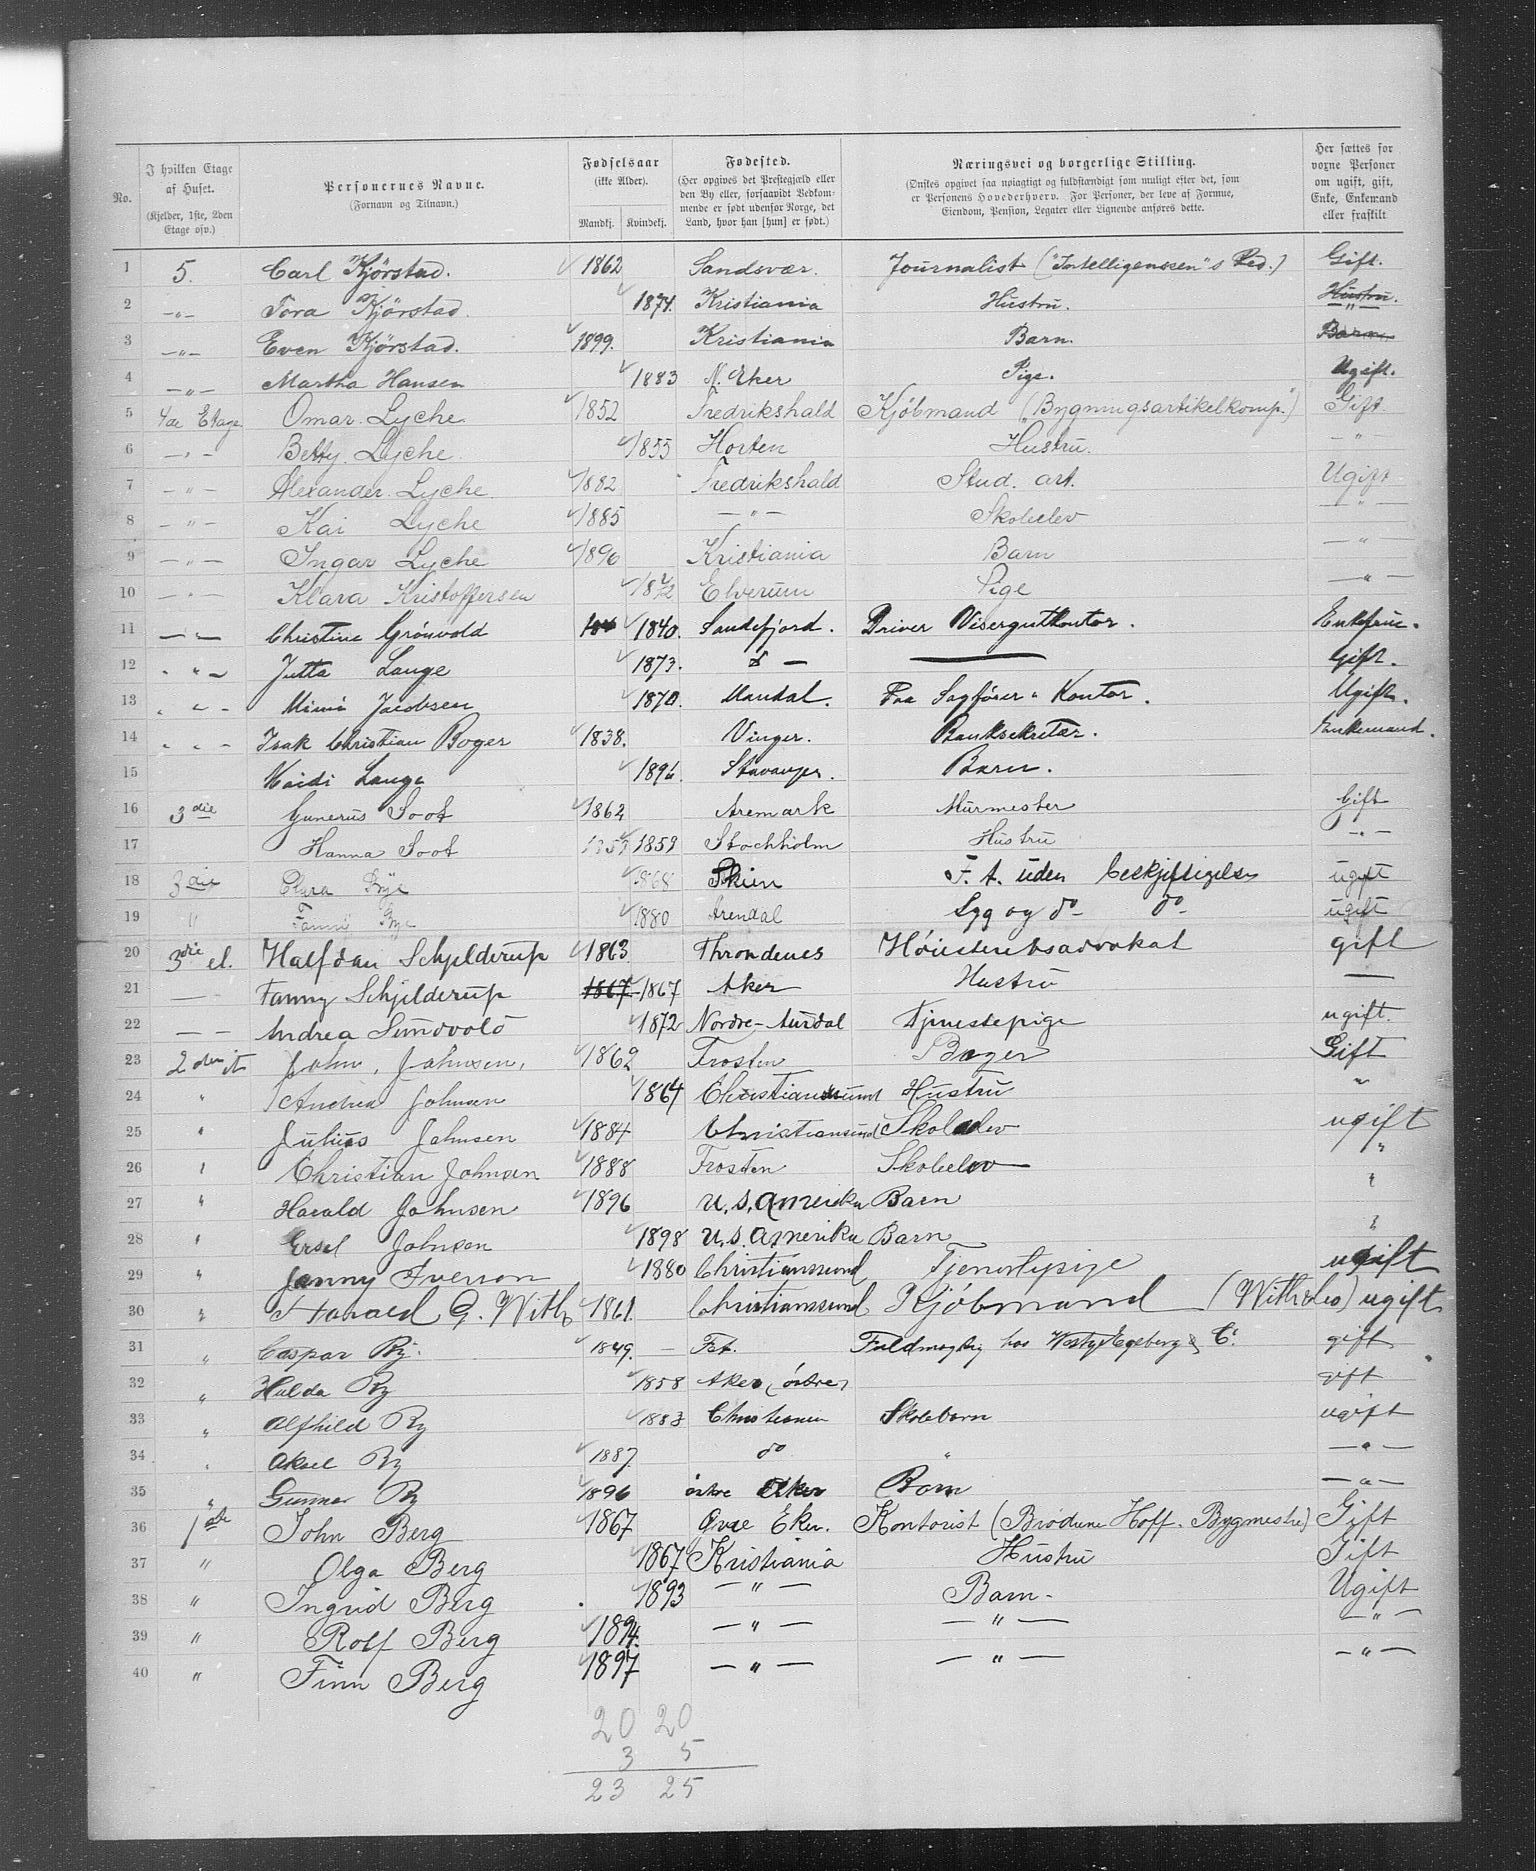 No. | I hvilken Etage af Huset. (Kjelder, 1ste, 2den Etage osv.) | Personernes Navne. (Fornavn og Tilnavn.) | Fødselsaar (ikke Alder). Mandkj. Kvindekj. | Fødested. (Her opgives det Prestegjæld eller den By eller, forsaavidt Vedkommende er født udenfor Norge, det Land, hvor han [hun] er født.) | Næringsvei og borgerlige Stilling. (Ønskes opgivet saa nøiagtigt og fuldstændigt som muligt efter det, som er Personens Hovederhverv. For Personer, der leve af Formue, Eiendom, Pension, Legater eller Lignende anføres dette. | Her sættes for voxne Personer om ugift, gift, Enke, Enkemand eller fraskilt
1 5. Carl Kjörstad. 1862 Sandsvær. Journalist ("Intelligenssen"s Red.) Gift.
2 —"— Tora Kjörstad. 1871. Kristiania Hustru. Hustru. —"—
3 —"— Even Kjörstad. 1899. Kristiania Barn. Barn
4 —"— Martha Hansen 1883 N. Eker Pige. Ugift.
5 4de Etage Omar Lyche 1852 Fredrikshald Kjøbmand ("Bygningsartikelkomp.") Gift.
6 —"— Betty Lyche. 1855 Horten Hustru. —"—
7 —"— Alexander Lyche. 1882 Fredrikshald Stud. art. Ugift
8 —"— Kai Lyche 1885 —"— Skoleelev —"—
9 —"— Ingar Lyche 1896 Kristiania Barn —"—
10 —"— Klara Kristoffersen 1872 Elverum Pige —"—
11 —"— Christine Grönvold 1840. Sandefjord. Driver Visergutkontor. Enkefrue.
12 " " — Jutta Lange 1873. do — — Gift.
13 " " — Mimi Jacobsen 1870. Mandal. Paa Sagfører" Kontor. Ugift.
14 " " — Isak Christian Boger 1838. Vinger. Banksekretær. Enkemand.
15 Haidi Lange 1896. Stavanger. Barn.
16 3die Gunerius Soot 1862 Aremark Murmester Gift
17 Hanna Soot 1859 1859 Stockholm Hustru —"—
18 3die Clara Bye 1868 Skien F. t. uden beskjeftigelse ugift
19 " Fanny Bye 1880 Arendal Syg og do— do— ugift
20 3die et. Halfdan Schjelderup 1863 Throndenes Høiesteretsadvokat gift
21 — Fanny Schjelderup 1867 1867 Aker Hustru —
22 — — Andrea Sundvold 1872 Nordre-Aurdal Tjenestepige ugift.
23 2den et John Johnsen, 1862 Frosten Bager Gift
24 " Andrea Johnsen 1864 Christiansund Hustru "
25 " Julius Johnsen 1884 Christiansund Skoleelev ugift
26 " Christian Johnsen 1888 Frosten Skoleelev "
27 " Harald Johnsen 1896 U.S. Amerika Barn "
28 " Johnsen 1898 U.S. Amerika Barn "
29 " Jenny Iverson 1880 Christianssund Tjenestepige ugift
30 " Harald G. With 1861. Christianssund Kjöbmand (With & Co) ugift
31 " Caspar Ry. 1849. — Fet. Fuldmægtig hos Westye Egeberg & Co. gift
32 " Hulda Ry 1858 Aker (östre) gift
33 " Alfhild Ry 1883 Christiania Skolebarn ugift
34 " Aksel Ry 1887. do " —"—
35 " Gunnar Ry 1896 östre Aker Barn —"—
36 1ste John Berg 1867 Øvre Eker. Kontorist (Brødrene Hoff. Bygmestre) Gift
37 " Olga Berg 1867 Kristiania Hustru Gift
38 " Ingrid Berg 1893 —"— Barn - Ugift
39 " Rolf Berg 1894. —"— —"— —"—
40 " Finn Berg 1897 —"— —"— —"—
20 20
3 5
23 25